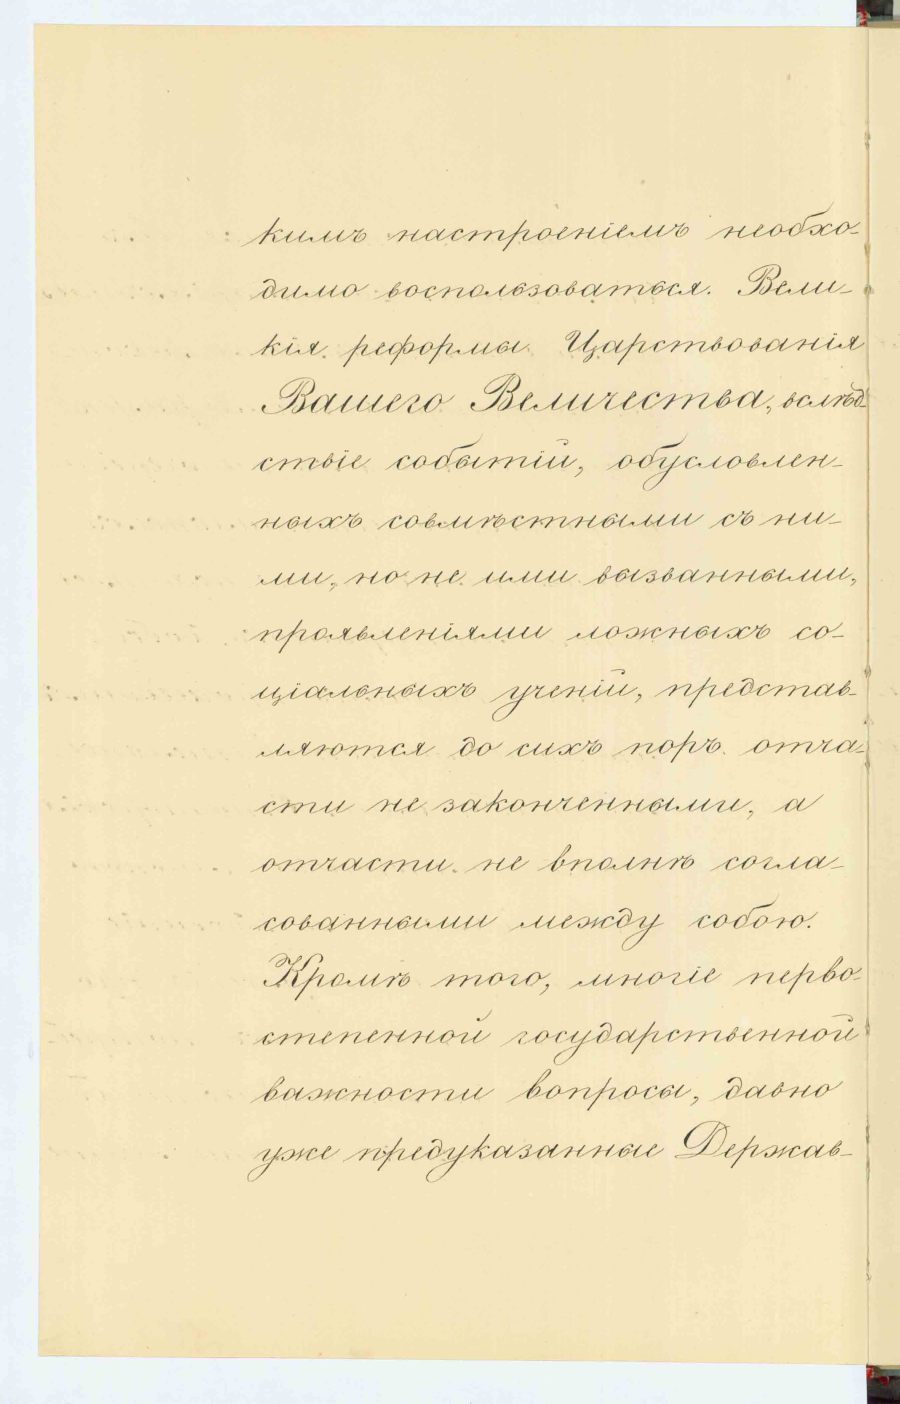 кимъ настроеніемъ необхо-
димо воспользоваться. Вели-
кія реформы Царствованія
Вашего Величества, вслѣд-
ствіе событій, обусловлен-
ныхъ совмѣстными съ ни-
ми, но не ими вызванными,
проявленіями ложныхъ со-
ціальныхъ ученій, представ-
ляются до сихъ поръ отча-
сти не законченными, а
отчасти не вполнѣ согла-
сованными между собою.
Кромѣ того, многіе перво-
степенной государственной
важности вопросы, давно
уже предуказанные Держав-